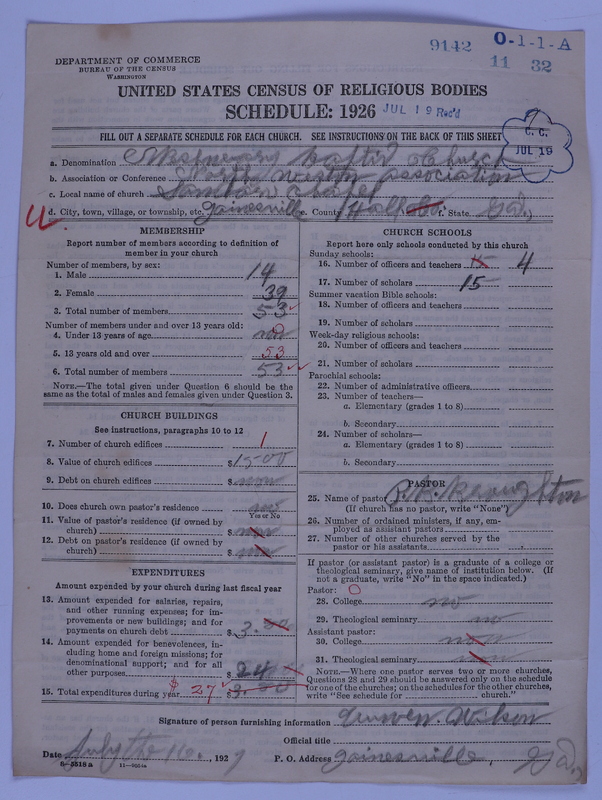 9142 0-1-1-A
11 32
DEPARTMENT OF COMMERCE
BUREAU OF THE CENSUS
WASHINGTON
UNITED STATES CENSUS OF RELIGIOUS BODIES
SCHEDULE: 1926 JUL 19 Rec'd
FILL OUT A SEPARATE SCHEDULE FOR EACH CHURCH. SEE INSTRUCTIONS ON THE BACK OF THIS SHEET
C. C.
JUL 19
a. Denomination Baptis Church
b. Association or Conference North association
c. Local name of church
d. City, town, village, or township, etc. Gainesville e. County Hall Co f. State Ga.)
MEMBERSHIP
Report number of members according to definition of
member in your church
Number of members, by sex:
1. Male 14
2. Female 39
3. Total number of members 53
Number of members under and over 13 years old:
4. Under 13 years of age non 0
5. 13 years old and over 53
6. Total number of members 53
NOTE.—The total given under Question 6 should be the
same as the total of males and females given under Question 3.
CHURCH BUILDINGS
See instructions, paragraphs 10 to 12
7. Number of church edifices 1
8. Value of church edifices $1500
9. Debt on church edifices $ non
10. Does church own pastor's residence no
Yes or No
11. Value of pastor's residence (if owned by
church) $ non
12. Debt on pastor's residence (if owned by
church) $ non
EXPENDITURES
Amount expended by your church during last fiscal year
13. Amount expended for salaries, repairs,
and other running expenses; for im-
provements or new buildings; and for
payments on church debt $ 3.00
14. Amount expended for benevolences, in-
cluding home and foreign missions; for
denominational support; and for all
other purposes $ 24
15. Total expenditures during year $ 27 $
CHURCH SCHOOLS
Report here only schools conducted by this church
Sunday schools:
16. Number of officers and teachers 15 4
17. Number of scholars 15
Summer vacation Bible schools:
18. Number of officers and teachers
19. Number of scholars
Week-day religious schools:
20. Number of officers and teachers
21. Number of scholars
Parochial schools:
22. Number of administrative officers
23. Number of teachers—
a. Elementary (grades 1 to 8)
b. Secondary
24. Number of scholars—
a. Elementary (grades 1 to 8)
b. Secondary
PASTOR
25. Name of pastor
(If church has no pastor, write "None")
26. Number of ordained ministers, if any, em-
ployed as assistant pastors
27. Number of other churches served by the
pastor or his assistants
If pastor (or assistant pastor) is a graduate of a college or
theological seminary, give name of institution below. (If
not a graduate, write "No" in the space indicated.)
Pastor: 0
28. College no
29. Theological seminary no
Assistant pastor:
30. College non
31. Theological seminary non
NOTE.—Where one pastor serves two or more churches,
Questions 28 and 29 should be answered only on the schedule
for one of the churches; on the schedules for the other churches,
write "See schedule for church."
Signature of person furnishing information Wilson
Official title
Date July the 16. 1927 P. O. Address Gainesville Ga.
8-5518 a